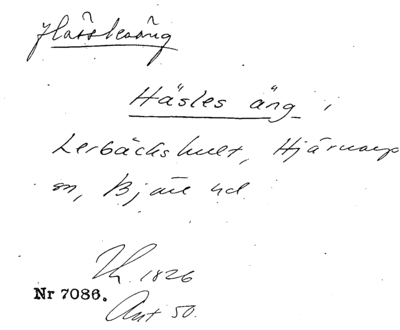 Hässlesäng
Häsles äng i
Lerbäckshult, Hjärnarp
sn, Bjäre hd
1826
Nr 7086.
Ant 50.